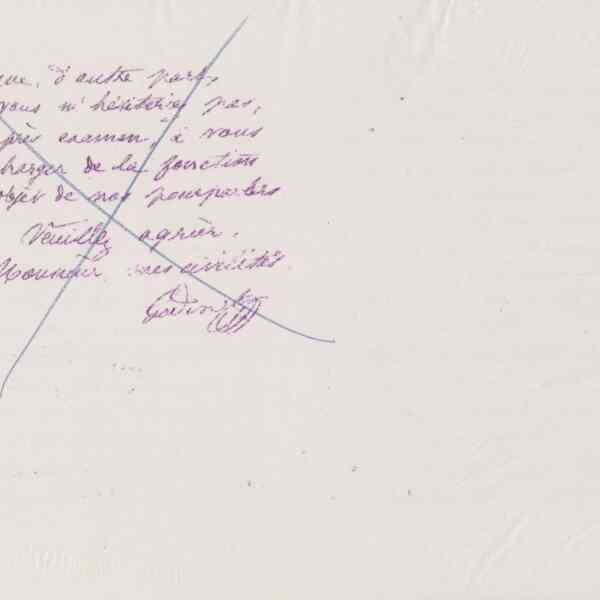 ue, d'autre part,
vous n'hésiterez pas,
près examen, à vous
charger de la fonction
objet de nos pourparlers
Veuillez agréer,
Monsieur, mes civilités